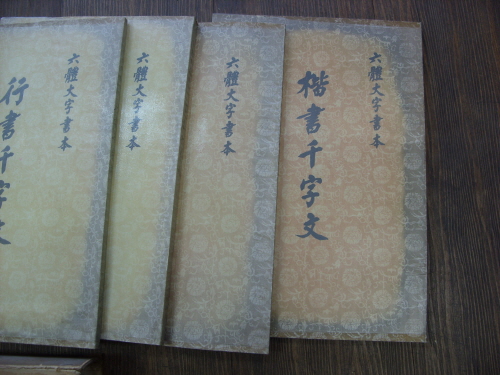 六體大字書本
楷書千字文
六體大字書本
六體大字書本
六體大字書本
行書千字文